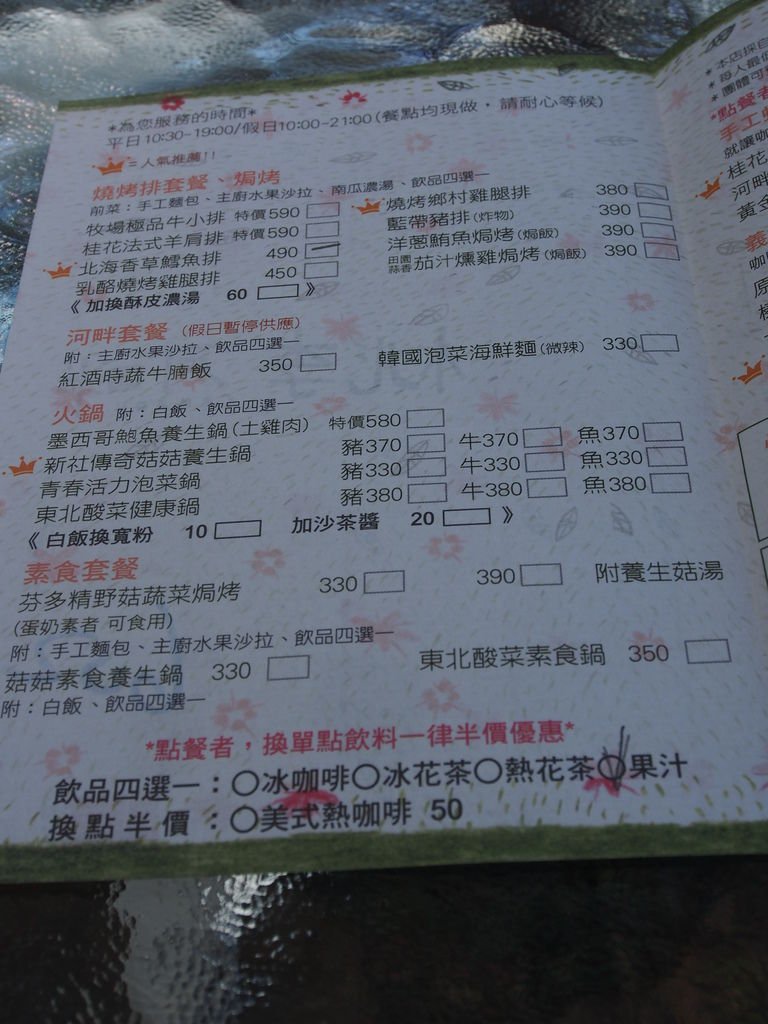 *為您服務的時間*
平日10:30-19:00/假日10:00-21:00(餐點均現做，請耐心等候)
=人氣推薦!!
燒烤排套餐、焗烤
前菜：手工麵包、主廚水果沙拉、南瓜濃湯、飲品四選一
牧場極品牛小排 特價590
燒烤鄉村雞腿排 380
桂花法式羊肩排 特價590
藍帶豬排(炸物) 390
北海香草鱈魚排 490
洋蔥鮪魚焗烤(焗飯) 390
乳酪燒烤雞腿排 450
田園蒜香茄汁燻雞焗烤(焗飯) 390
《加換酥皮濃湯 60 》
河畔套餐 (假日暫停供應)
附：主廚水果沙拉、飲品四選一
紅酒時蔬牛腩飯 350
韓國泡菜海鮮麵(微辣) 330
火鍋 附：白飯、飲品四選一
墨西哥鮑魚養生鍋(土雞肉) 特價580
新社傳奇菇菇養生鍋 豬370 牛370 魚370
青春活力泡菜鍋 豬330 牛330 魚330
東北酸菜健康鍋 豬380 牛380 魚380
《白飯換寬粉 10 加沙茶醬 20 》
素食套餐
芬多精野菇蔬菜焗烤 330 390 附養生菇湯
(蛋奶素者 可食用)
附：手工麵包、主廚水果沙拉、飲品四選一
菇菇素食養生鍋 330 東北酸菜素食鍋 350
附：白飯、飲品四選一
*點餐者，換單點飲料一律半價優惠*
飲品四選一：○冰咖啡○冰花茶○熱花茶○果汁
換點半價：○美式熱咖啡 50
*本店採自
*每人最低
*團體可
*點餐者
手工
就讓咖
桂花
河畔
黃金
咖
原